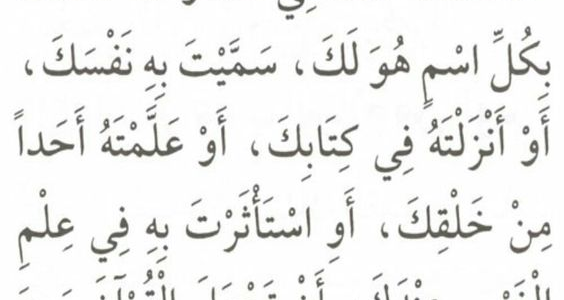 بِكُلِّ اسْمٍ هُوَ لَكَ، سَمَّيْتَ بِهِ نَفْسَكَ،
أَوْ أَنْزَلْتَهُ فِي كِتَابِكَ، أَوْ عَلَّمْتَهُ أَحَداً
مِنْ خَلْقِكَ، أَوِ اسْتَأْثَرْتَ بِهِ فِي عِلْمِ